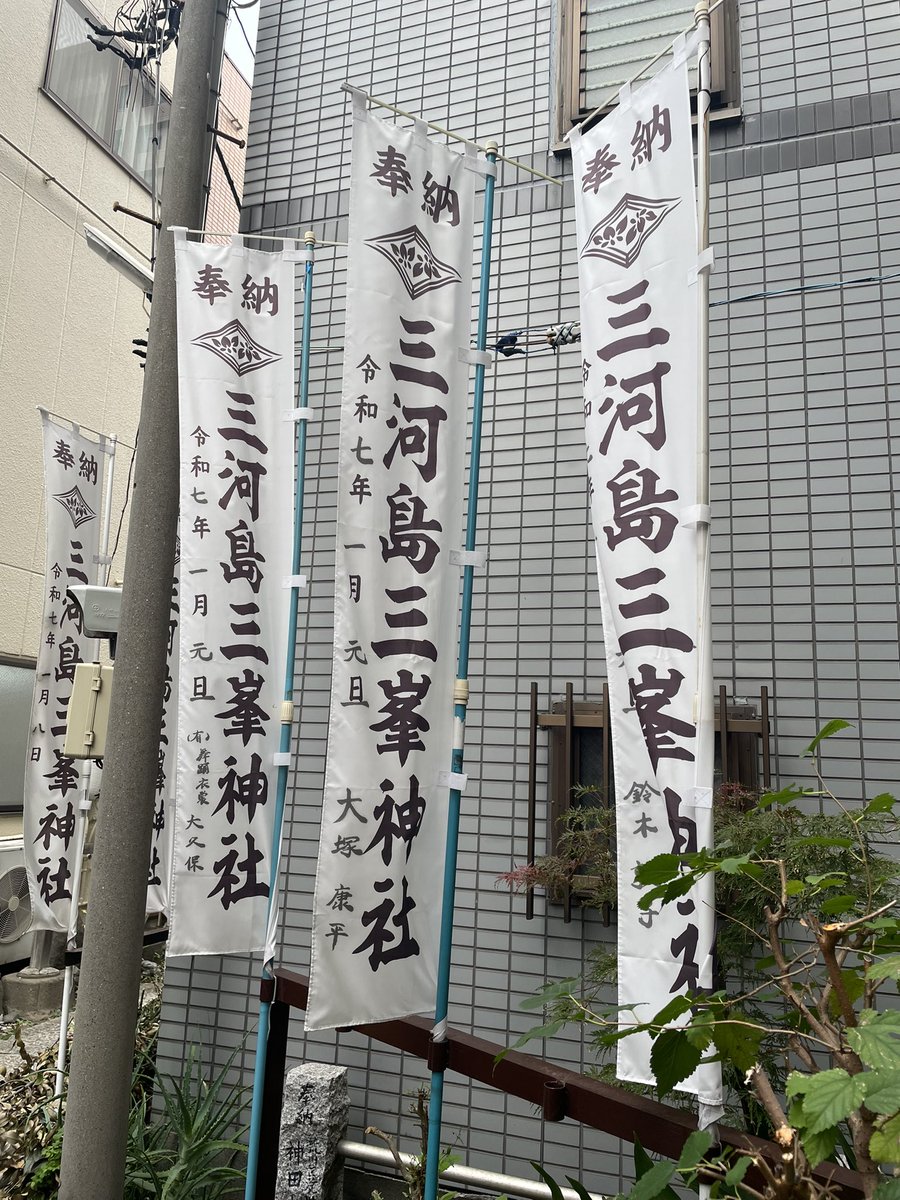 奉納
三河島三峯神社
令和
鈴木
奉納
三河島三峯神社
令和七年 一月 元旦
大塚 康平
奉納
三河島三峯神社
令和七年 一月 元旦
(有)舞踊衣裳 大久保
奉納
三河島三峯神社
令和七年 一月 八日
奉納
神田